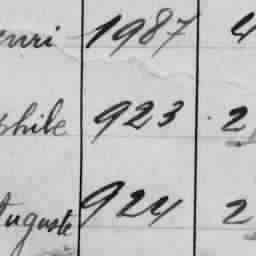 enri 1987 4
phile 923 2
Auguste 924 2